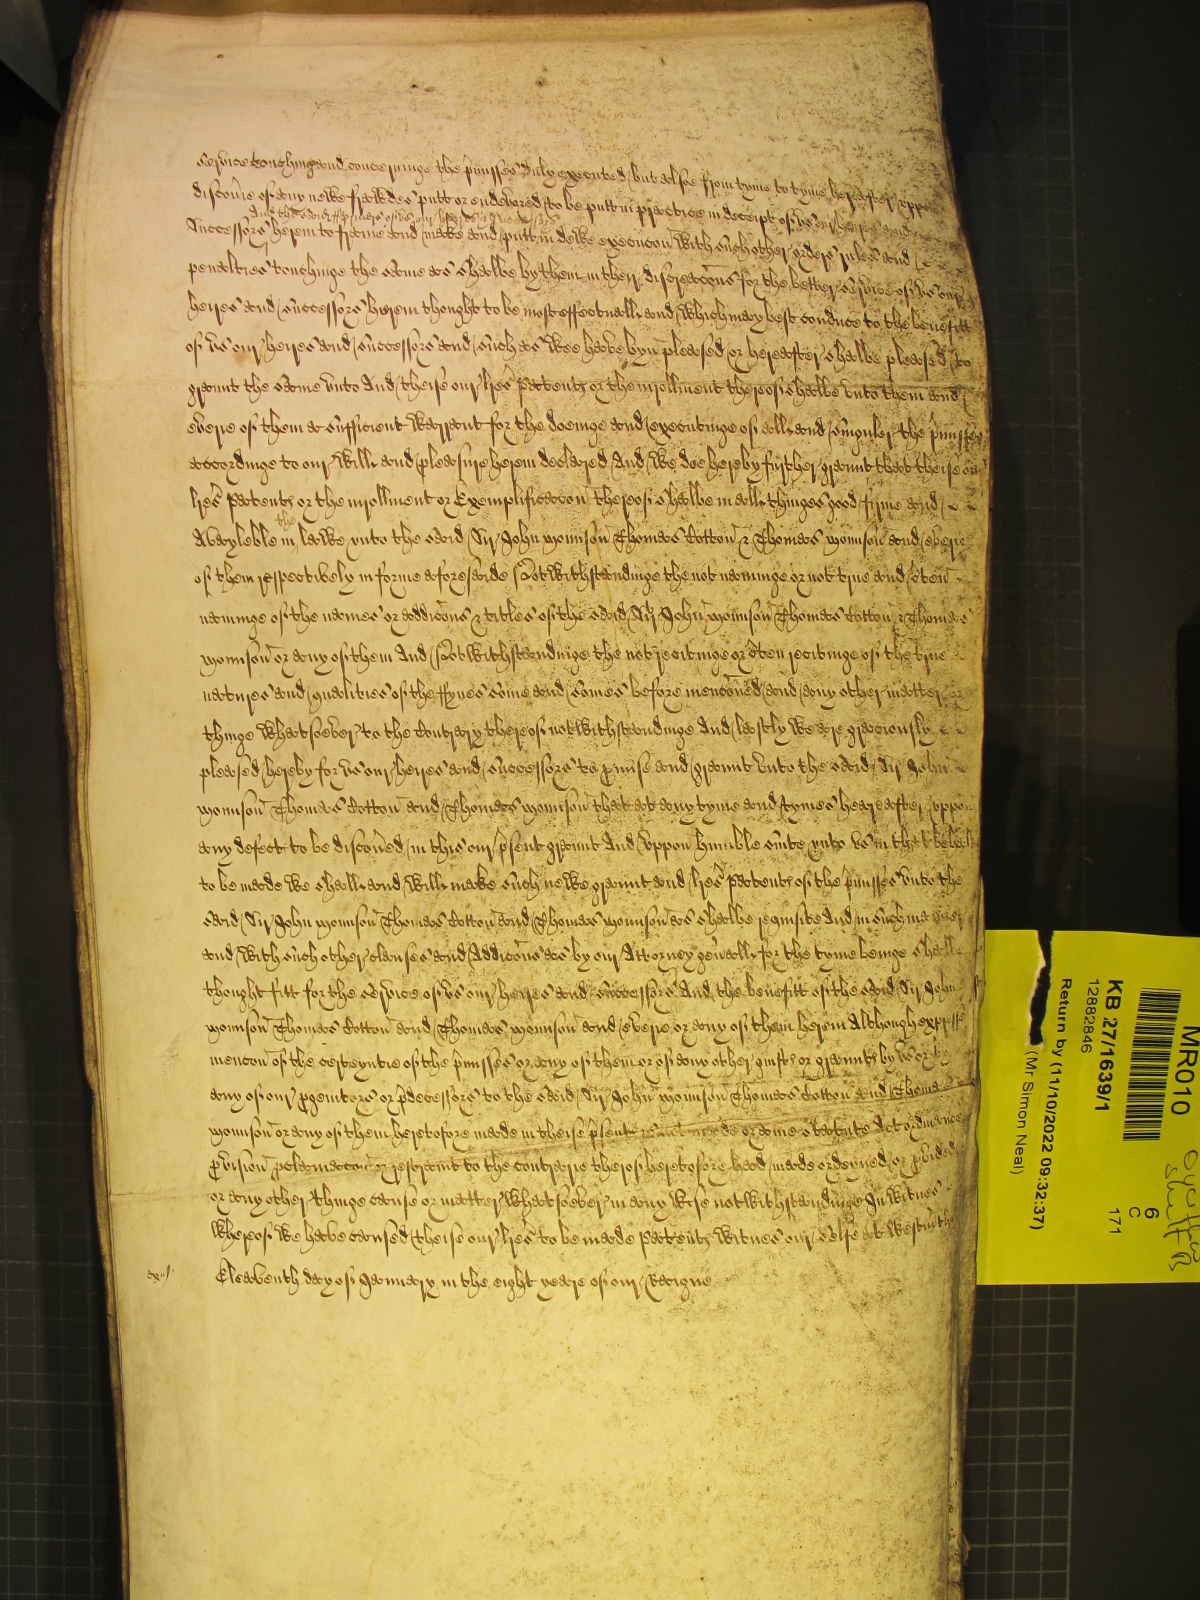 service touching and concerninge the p'misses duly executed but alsoe from tyme to tyme hereafter uppon
discou'ie of any newe fraudes putt or endevored to be putt in practice in deceipt of us our heires and
And the said ffermers of us our heires
Successors herein to frame and make and putt in dewe execucon with such other orders rules and
penalties touchinge the same as shalbe by them in their discreacons for the better service of us our
heires and successors herein thought to be most effectuall and which may best conduce to the benefitt
of us our heires and successors and such as wee have byn pleased or hereafter shalbe pleased to
graunt the same unto And theise our l'res Patents or the inrollment thereof shalbe unto them and
everie of them a sufficient warrant for the doeinge and executinge of all and singuler the p'misses
accordinge to our will and pleasure herein declared And we doe hereby further graunt that theise our
l'res Patents or the inrollment or Exemplificacon thereof shalbe in all thinges good firme and
the
Avayleble in lawe unto the said Sir John Monnson Thomas Cotton & Thomas Monnson and everie
of them respectively in forme aforesaide Notwithstandinge the not naminge or not true and c'ten
naminge of the names or addicons & titles of the said Sir John Monnson Thomas Cotton & Thomas
Monnson or any of them And Notwithstandinge the not recitinge or c'ten recitinge of the true
natures and qualities of the ffynes some and somes before menconed and any other matter or
thinge whatsoever to the Contrary thereof notwithstandinge And lastly we are graciously
pleased hereby for us our heires and successors to p'mise and graunt unto the said Sir John
Monnson Thomas Cotton and Thomas Monnson that at any tyme and tymes heareafter uppon
any defect to be discou'ed in this our p'sent graunt And uppon humble suite unto us in that behalf
to be made we shall and will make such newe graunt and l'res Patents of the p'misses unto the
said Sir John Monnson Thomas Cotton and Thomas Monnson as shalbe requisite And in such manner
and with such other clauses and Addicons as by our Attorney gen'all for the tyme beinge shalbe
thought fitt for the service of us our heires and successors And the benefitt of the said Sir John
Monnson Thomas Cotton and Thomas Monnson and everie or any of them herein Although expresse
mencon of the certeyntie of the p'misses or any of them or of any other guifts or graunts by us or by
any of our p'genitors or p'decessors to the said Sir John Monnson Thomas Cotton and Thomas
Monnson or any of them heretofore made in theise p'sents is not made or anie Statute Act ordinance
p'vision p'clamacon or restraint to the contrarie thereof heretofore had made ordeyned or p'vided
or any other thinge cause or matter whatsoever in any wise notwithstandinge In witnes
whereof we have caused theise our l'res to be made Patents witnes our selfe at Westm' the
Eleaventh day of January in the eight yeare of our Raigne
MR010
6
C
171
KB 27/1639/1
12882846
Return by (11/10/2022 09:32:37)
(Mr Simon Neal)